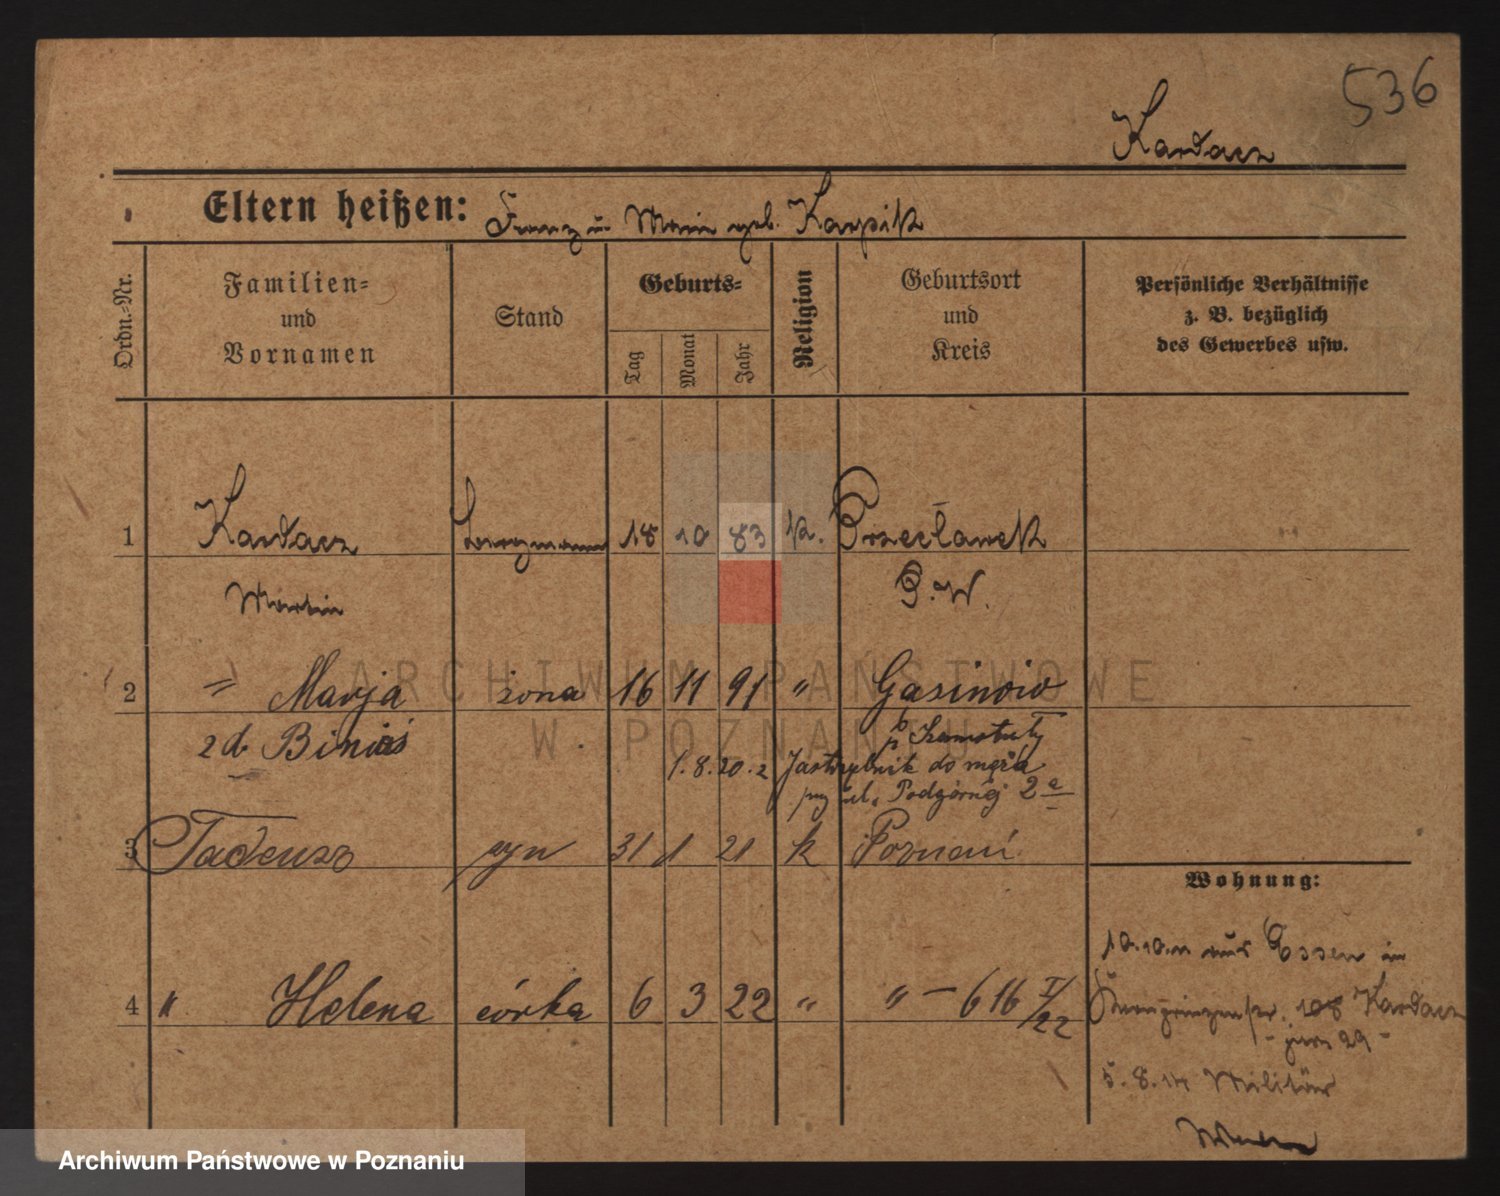 536
Kardacz
Eltern heißen: Franz u. Marie geb. Karpik
Ordn.-Nr.
Familien-
und
Vornamen
Stand
Geburts-
Tag
Monat
Jahr
Religion
Geburtsort
und
Kreis
Persönliche Verhältnisse
z. B. bezüglich
des Gewerbes usw.
1 Kardacz 18 10 83 k. Przecławek
Martin P. W.
2 " Marja żona 16 11 91 " Gasinowo
2 d. Binias p. Szamotuły
1.8.20. z Jastrzębnik do męża
przy ul. Podgórnej 2a
3 Tadeusz syn 31 1 21 k Poznań
Wohnung:
10.10.11 aus Essen in
4 " Helena córka 6 3 22 " " — 616 I/22
Kronprinzenstr. 108 Kardacz
5.8.14 Militär
ARCHIWUM PAŃSTWOWE
W POZNANIU
Archiwum Państwowe w Poznaniu